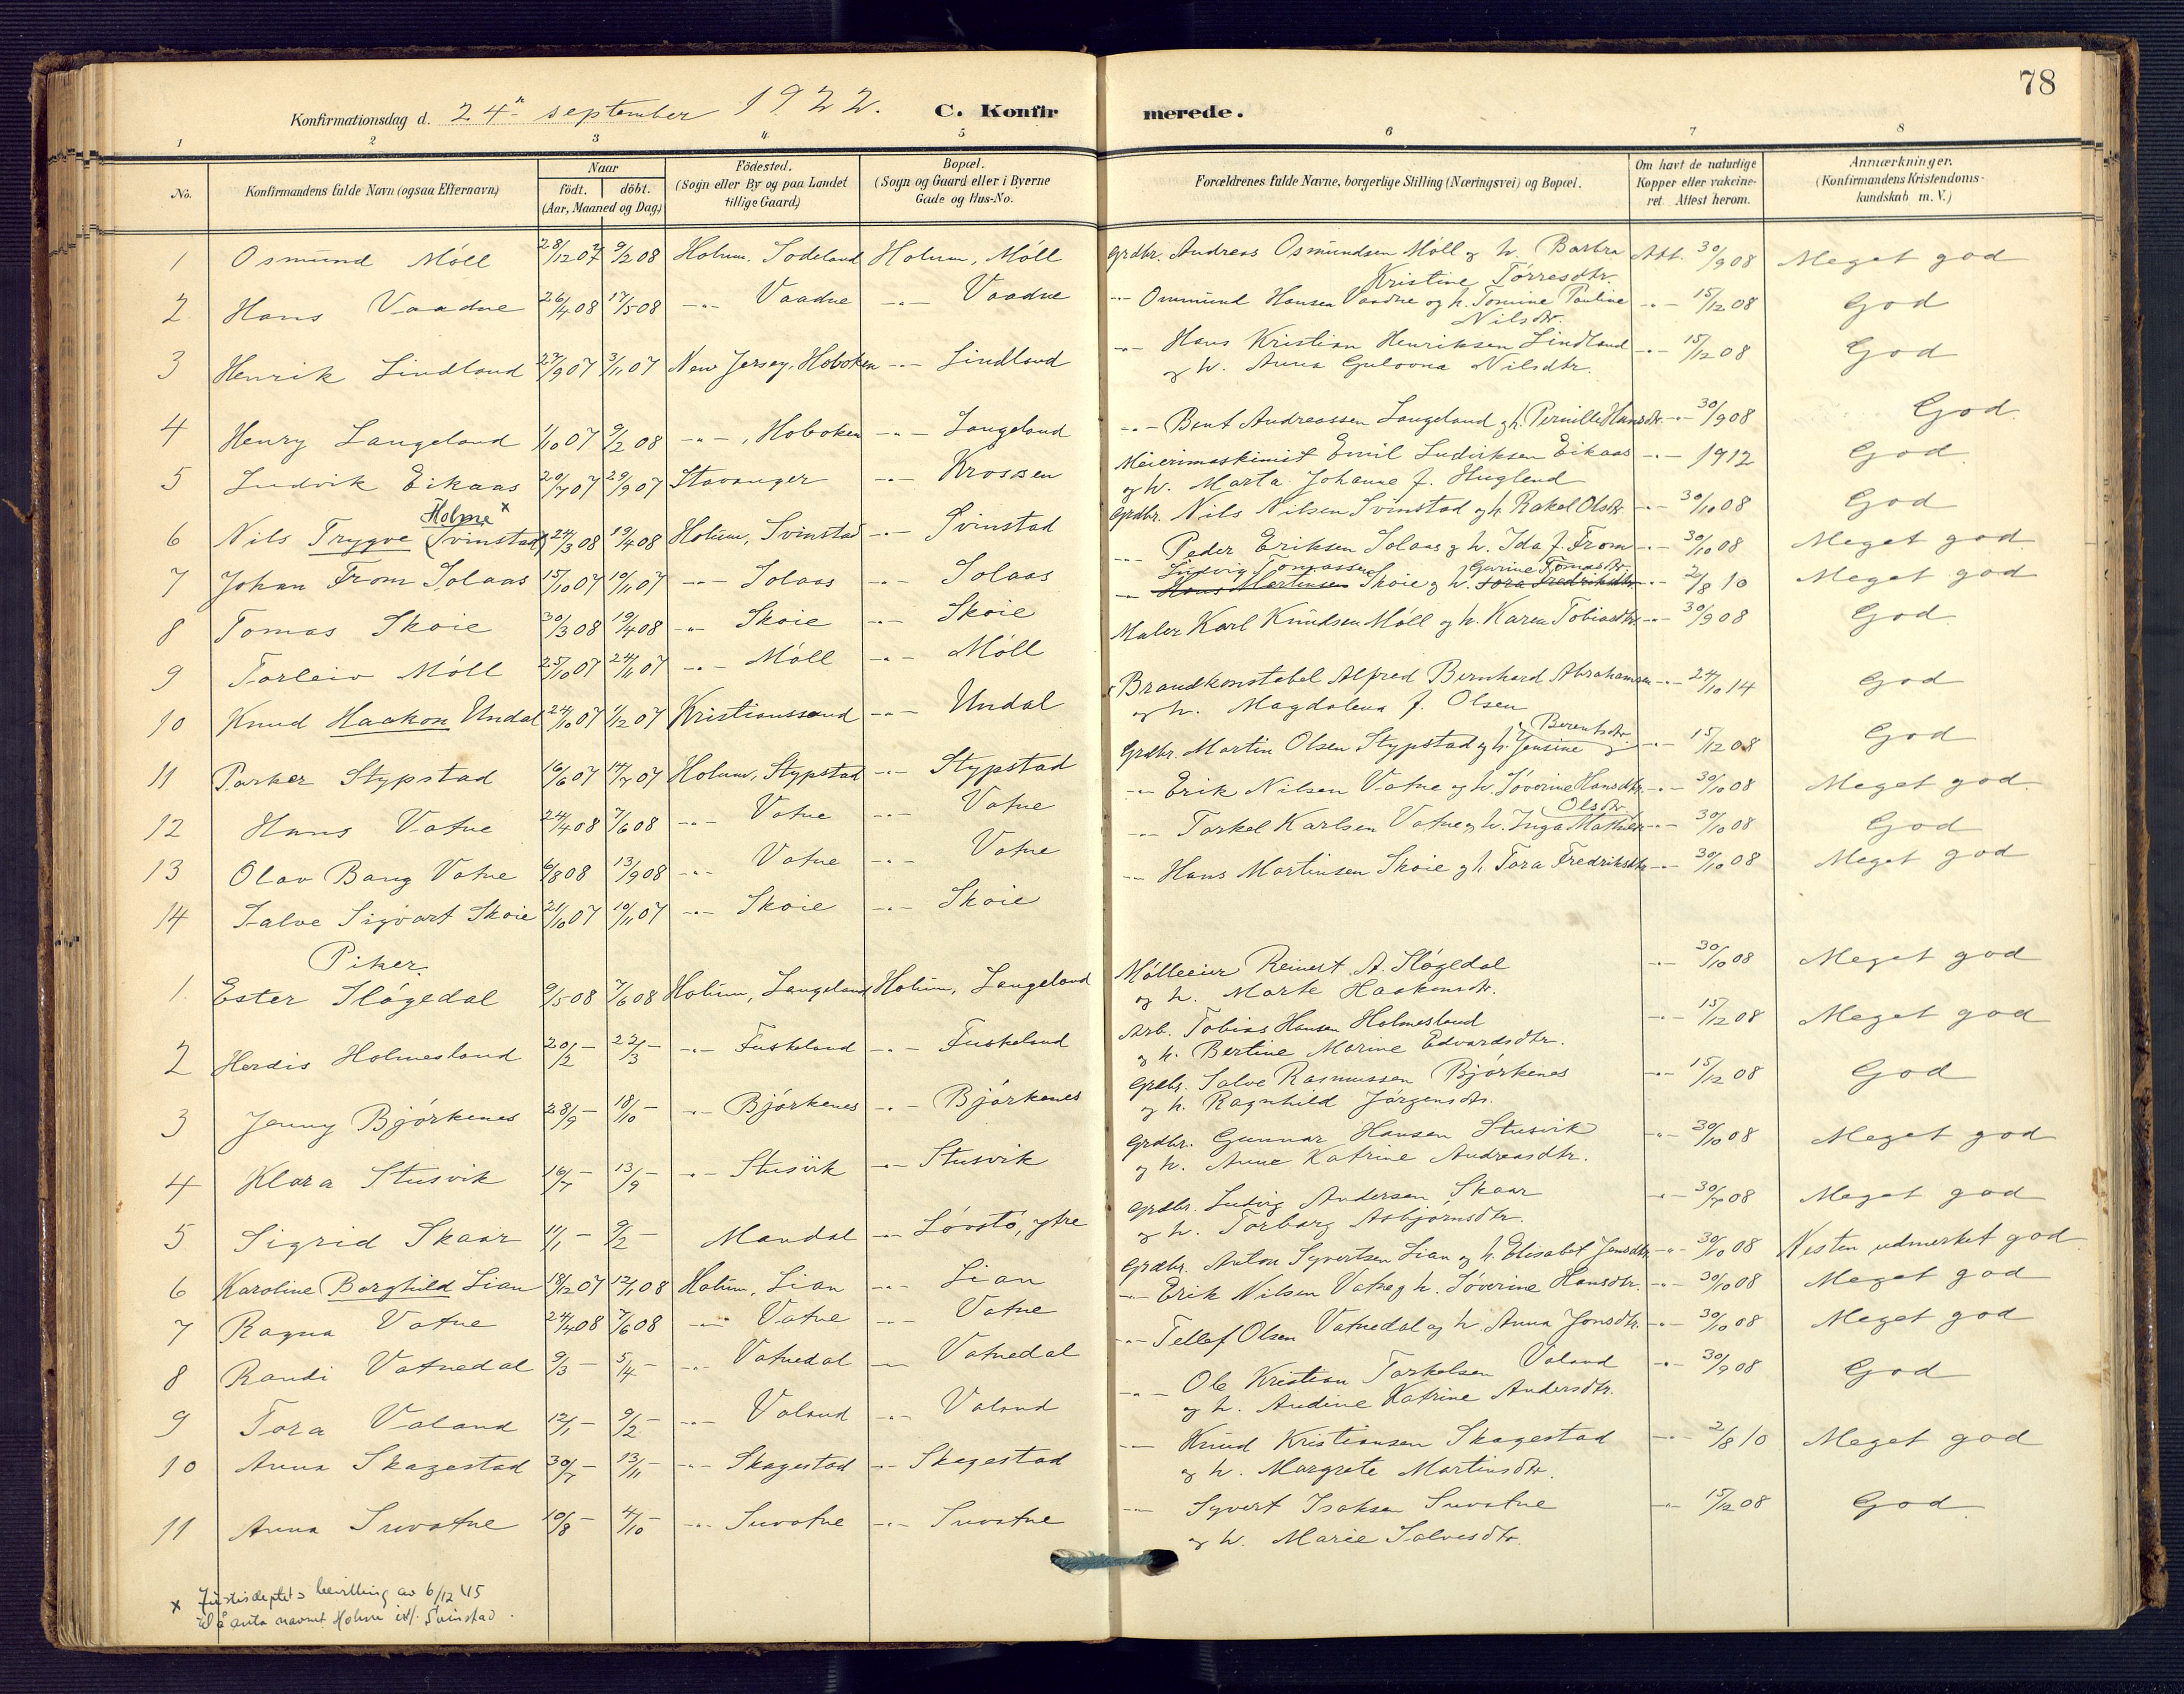 78
Konfirmationsdag d. 24n september 1922. C. Konfirmerede.
1 2 3 4 5 6 7 8
No. Konfirmandens fulde Navn (ogsaa Efternavn) Naar födt. döbt. (Aar, Maaned og Dag) Födested. (Sogn eller By og paa Landet tillige Gaard) Bopæl. (Sogn og Gaard eller i Byerne Gade og Hus-No. Forældrenes fulde Navne, borgerlige Stilling (Næringsvei) og Bopæl. Om havt de naturlige Kopper eller vakcineret. Attest herom. Anmærkninger. (Konfirmandens Kristendomskundskab m. V.)
1 Osmund Møll 28/12 07 9/2 08 Holum, Sodeland Holum, Møll Grdbr. Andreas Osmundsen Møll og h. Barbra Kristine Tørresdtr. Att. 30/9 08 Meget god
2 Hans Vaadne 26/4 08 17/5 08 -"- Vaadne -"- Vaadne -"- Ommund Hansen Vaadne og h. Tomine Pauline Nilsdtr. -"- 15/12 08 God
3 Henrik Lindland 27/9 07 3/11 07 New Jersey, Hoboken -"- Lindland -"- Hans Kristian Henriksen Lindland og h. Anna Gulovna Nilsdtr. -"- 15/12 08 God
4 Henry Langeland 1/10 07 9/2 08 -"-, Hoboken -"- Langeland -"- Bent Andreassen Langeland og h. Pernille Hansdtr. -"- 30/9 08 God.
5 Ludvik Eikaas 20/7 07 29/9 07 Stavanger -"- Krossen Meierimaskinist Emil Ludviksen Eikaas og h. Marta Johanne f. Huglend -"- 1912 God
6 Nils Trygve (Svinstad) Holme x 24/3 08 19/4 08 Holum, Svinstad -"- Svinstad Grdbr. Nils Nilsen Svinstad og h. Rakel Olsdtr. -"- 30/10 08 God
7 Johan From Solaas 15/10 07 10/11 07 -"- Solaas -"- Solaas -"- Peder Eriksen Solaas og h. Ida f. From -"- 30/10 08 Meget god
8 Tomas Skoie 30/3 08 19/4 08 -"- Skoie -"- Skoie -"- Hans Martinsen Ludvig Tomassen Skoie og h. Tora Fredriksdtr. Gurine Tomasdtr. -"- 2/8 10 Meget god
9 Torleiv Møll 25/10 07 24/11 07 -"- Møll -"- Møll Maler Karl Knudsen Møll og h. Karen Tobiasdtr. -"- 30/9 08 God
10 Knud Haakon Undal 24/10 07 1/12 07 Kristianssand -"- Undal Brandkonstabel Alfred Bernhard Abrahamsen og h. Magdalena f. Olsen -"- 24/10 14 God
11 Parker Stypstad 16/6 07 14/7 07 Holum, Stypstad -"- Stypstad Grdbr. Martin Olsen Stypstad og h. Jensine Berentsdtr. -"- 15/12 08 God
12 Hans Vatne 24/4 08 7/6 08 -"- Vatne -"- Vatne -"- Erik Nilsen Vatne og h. Søverine Hansdtr. -"- 30/10 08 Meget god
13 Olav Bang Vatne 6/8 08 13/9 08 -"- Vatne -"- Vatne -"- Torkel Karlsen Vatne og h. Inga Mathilde Olsdtr. -"- 30/10 08 God
14 Salve Sigvart Skoie 21/10 07 10/11 07 -"- Skoie -"- Skoie -"- Hans Martinsen Skoie og h. Tora Fredriksdtr. -"- 30/10 08 Meget god
Piker.
1 Ester Sløgedal 9/5 08 7/6 08 Holum, Langeland Holum, Langeland Mølleeier Reinert A. Sløgedal og h. Marte Haakonsdtr. -"- 30/10 08 Meget god
2 Herdis Holmesland 20/2 - 22/3 - -"- Fuskeland -"- Fuskeland Arb. Tobias Hansen Holmesland og h. Bertine Marine Edvardsdtr. -"- 15/12 08 Meget god
3 Jenny Bjørkenes 28/9 - 18/10 - -"- Bjørkenes -"- Bjørkenes Grdbr. Salve Rasmussen Bjørkenes og h. Ragnhild Jørgensdtr. -"- 15/12 08 God
4 Klara Stusvik 16/7 - 13/9 - -"- Stusvik -"- Stusvik Grdbr. Gunnar Hansen Stusvik og h. Anne Katrine Andreasdtr. -"- 30/10 08 Meget god
5 Sigrid Skaar 11/1 - 9/2 - Mandal -"- Løvstø, ytre Grdbr. Ludvig Andersen Skaar og h. Torborg Asbjørnsdtr. -"- 30/7 08 Meget god
6 Karoline Borghild Lian 18/12 07 12/1 08 Holum, Lian -"- Lian Grdbr. Anton Syvertsen Lian og h. Elisabet Jensdtr. -"- 30/10 08 Nesten udmerket god
7 Ragna Vatne 24/4 08 7/6 08 -"- Vatne -"- Vatne -"- Erik Nilsen Vatne og h. Søverine Hansdtr. -"- 30/10 08 Meget god
8 Randi Vatnedal 9/3 - 5/4 - -"- Vatnedal -"- Vatnedal -"- Tellef Olsen Vatnedal og h. Anna Jonsdtr. -"- 30/10 08 Meget god
9 Tora Valand 12/1 - 9/2 - -"- Valand -"- Valand -"- Ole Kristian Torkelsen Valand og h. Andine Katrine Andersdtr. -"- 30/9 08 God
10 Anna Skagestad 30/7 - 13/11 - -"- Skagestad -"- Skagestad -"- Knud Kristiansen Skagestad og h. Margrete Martinsdtr. -"- 2/8 10 Meget god
11 Anna Suvatne 10/8 - 4/10 - -"- Suvatne -"- Suvatne -"- Syvert Isaksen Suvatne og h. Marie Salvesdtr. -"- 15/12 08 God
x Justisdeptets bevilling av 6/12 '45
til å anta navnet Holme istf. Svinstad.